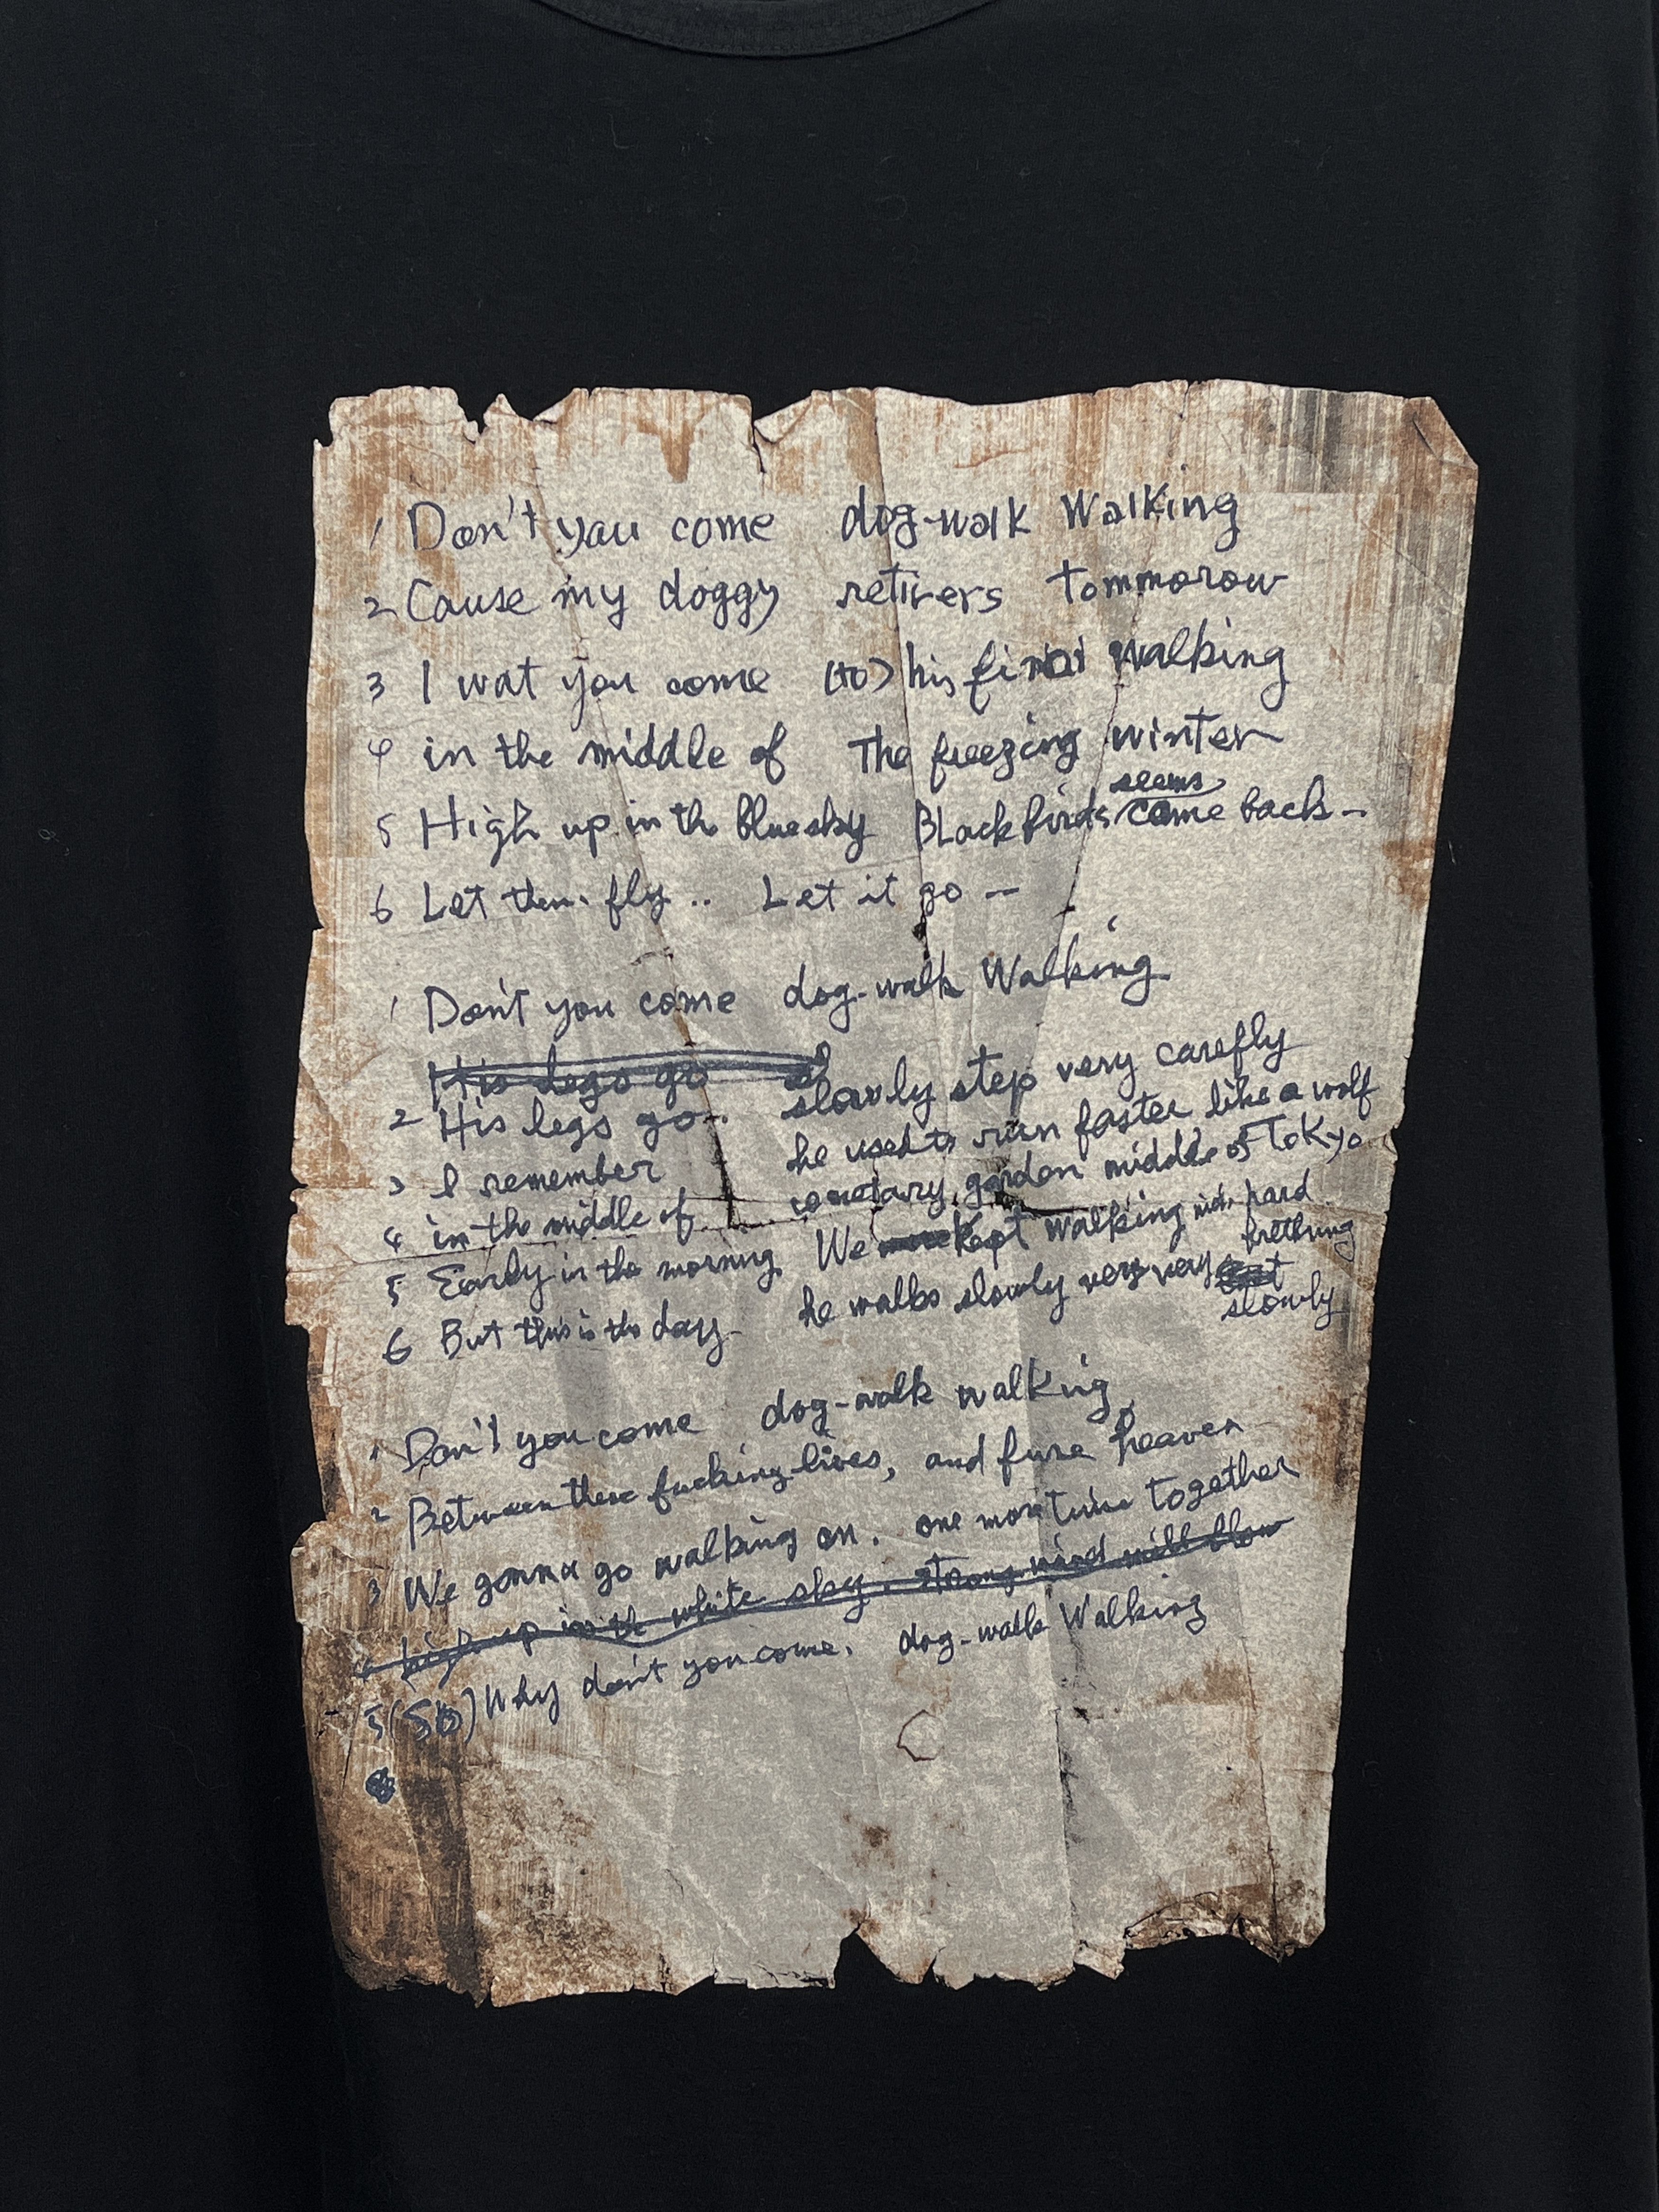 1 Don't you come dog-walk Walking
2 Cause my doggy retirers tommorow
3 I wat you come (to) his final walking
4 in the middle of The freezing winter
5 High up in the blue sky BLack birds seems come back -
6 Let them fly .. Let it go --
1 Don't you come dog-walk Walking
His legs go
2 His legs go.. slowly step very carefly
3 I remember he used to run faster like a wolf
4 in the middle of cemetary garden middle of ToKyo
5 Early in the morning We Kept walking hard brething
6 But this is the day he walks slowly very very slowly
1 Don't you come dog-walk walking,
2 Between these fucking lives, and heaven
3 We gonna go walking on. one more time together
4 high up in the white sky. strong wind will blow
5 (So) Why don't you come. dog-walk Walking